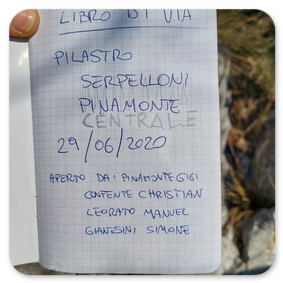 LIBRO DI VIA
PILASTRO
SERPELLONI
PINAMONTE
CENTRALE
29/06/2020
APERTO DA: PINAMONTE GIGI
CONTENTE CHRISTIAN
LEORATO MANUEL
GIANESINI SIMONE